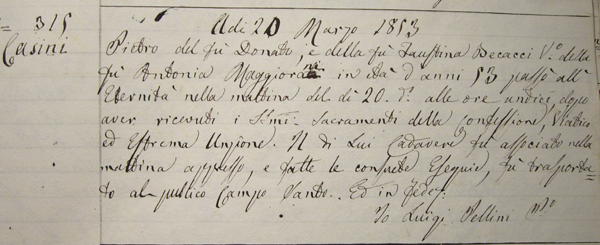 315
Casini
Adi 20 Marzo 1853
Pietro del fù Donato, e della fù Faustina Becacci V.o della
fù Antonia Maggiorani in età d'anni 53 passò all'
Eternità nella mattina del dì 20. d.o alle ore undici, dopo
aver ricevuti i S.mi Sacramenti della Confessione, Viatico
ed Estrema Unzione. Il di Lui Cadavere fù associato nella
mattina appresso, e fatte le consuete Esequie, fù trasporta=
to al publico Campo Santo. Ed in fede:
Io Luigi Pellini